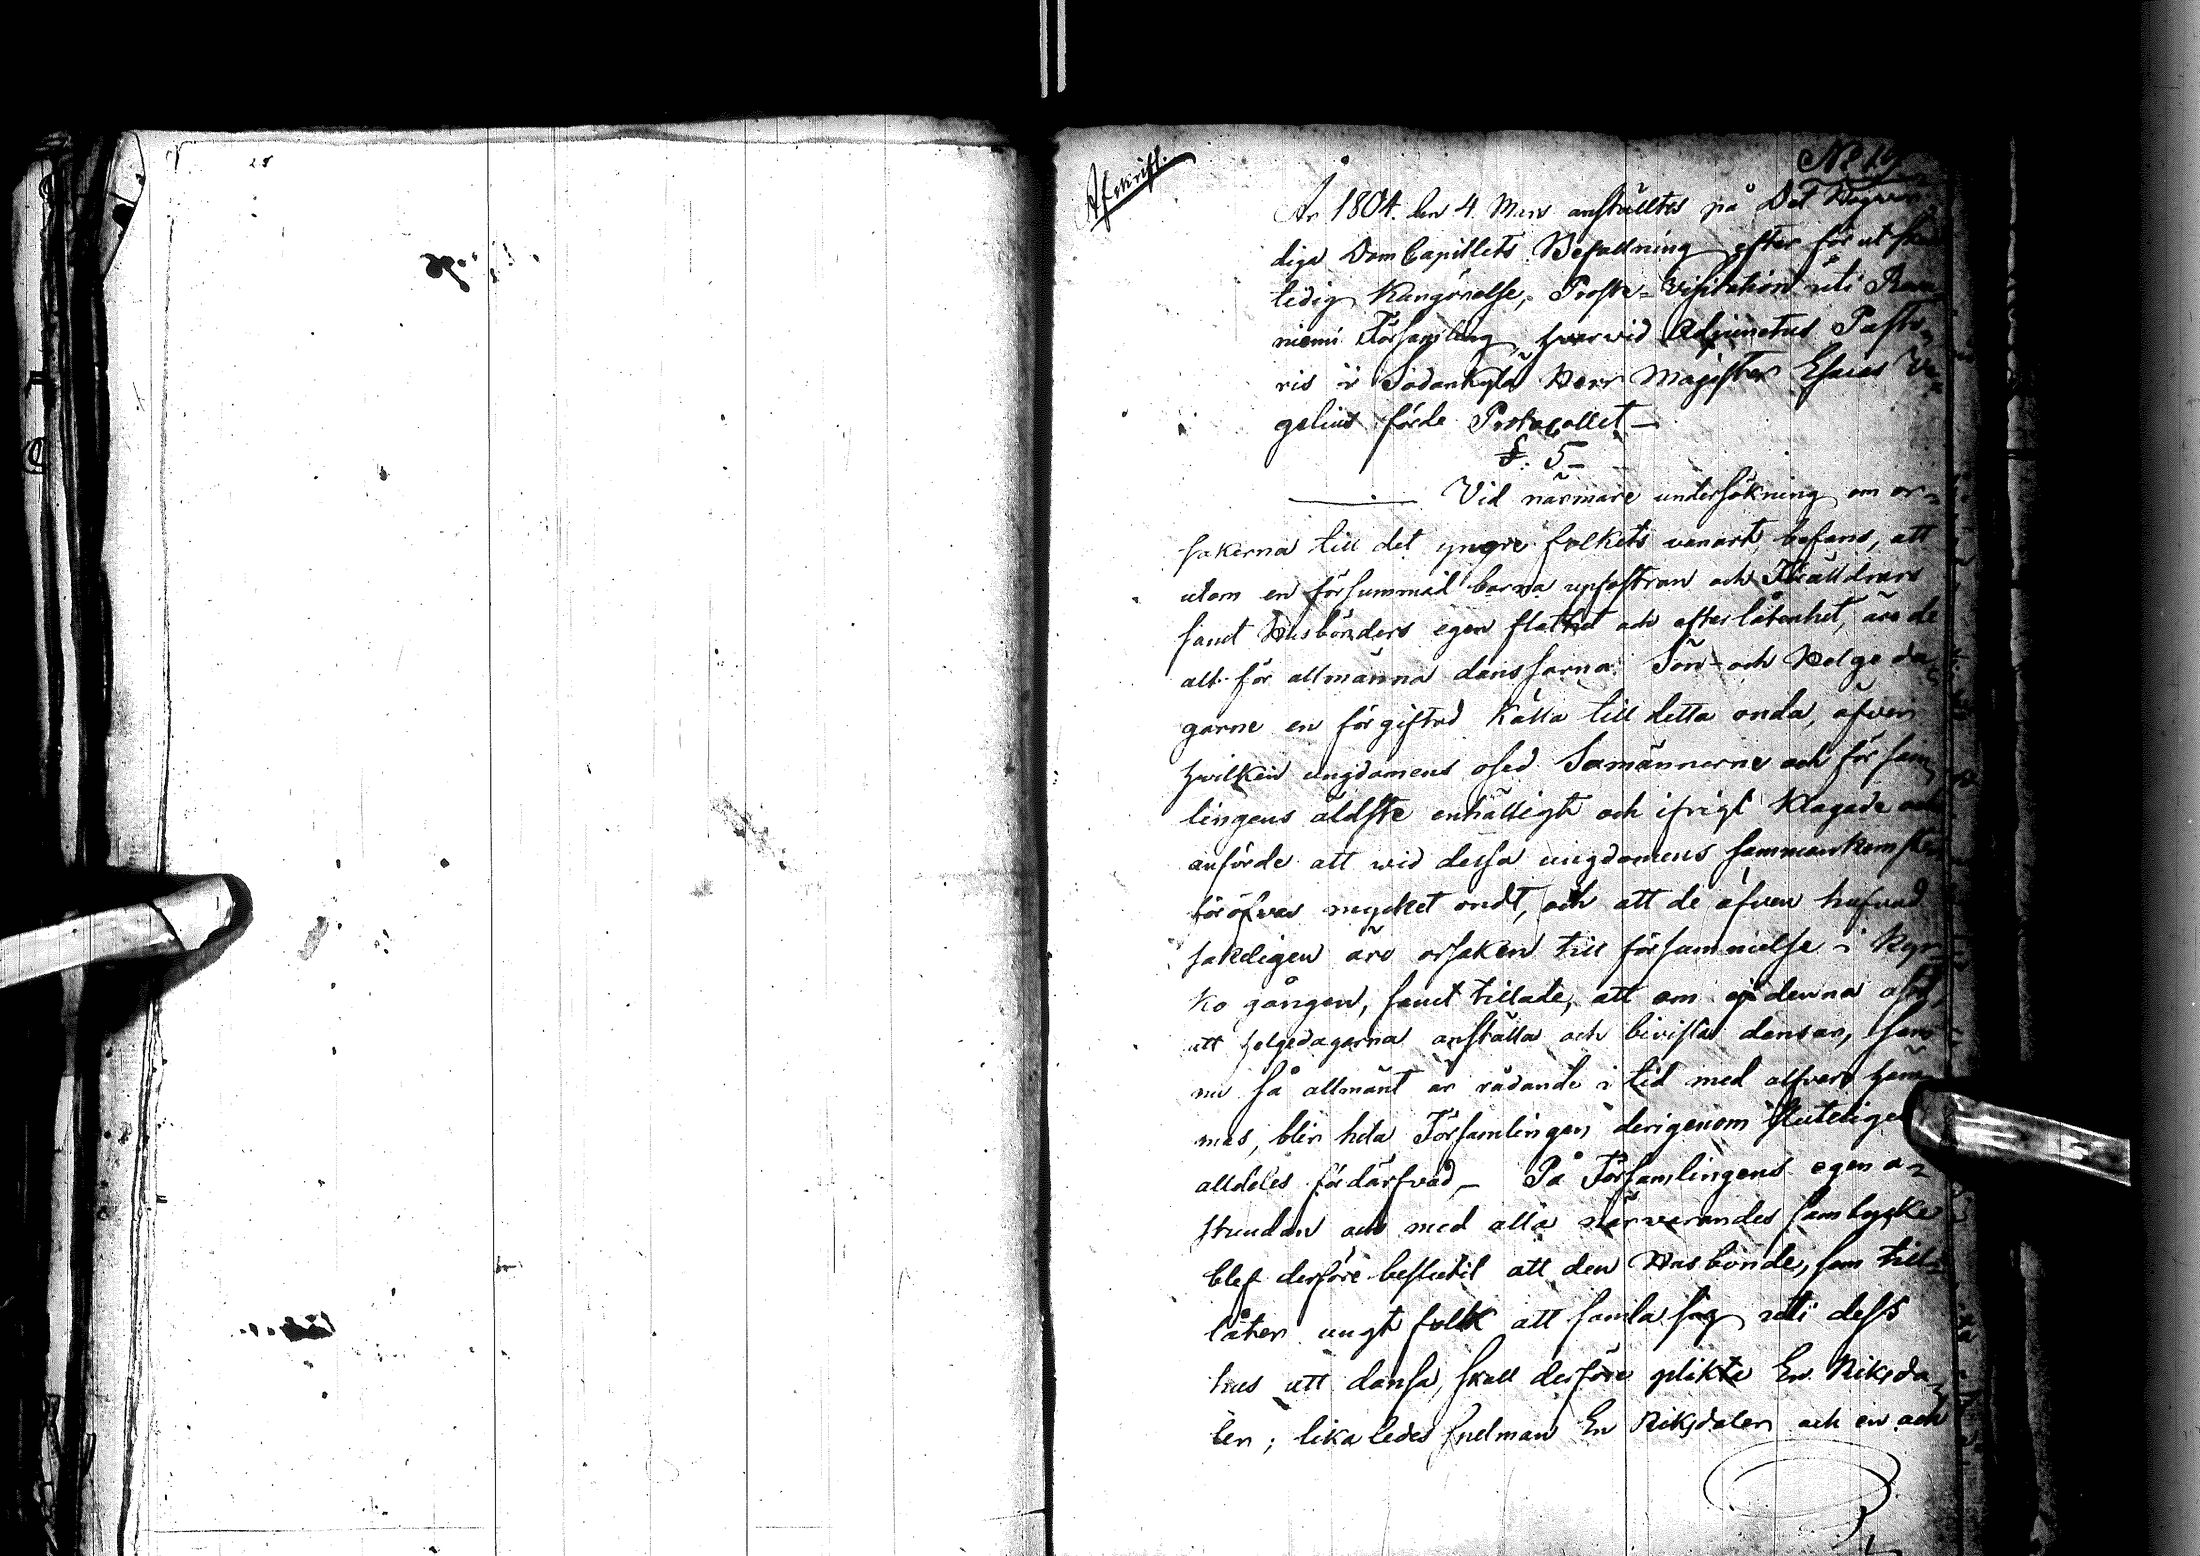 Afskrift.
No 19
År 1804. den 4 Mars anställtes på Det Högvör-
diga Dom Capitlets Befallning efter förut sked
tidig Kungörelse, Prosts-Visitation uti Rova-
niemi Församling hvarvid Adjunctus Pasto-
ris i Sodankylä Herr Magister Esaias
gelius förde Protocollet —
§. 5 —
Vid närmare undersökning om or-
sakerna till det yngre folkets vanart, befans, att
utom en försummad barna upfostran och Föräldrars
samt Husbönders egen flathet och efterlåtenhet, äro de
alt för allmänna dansarna Sön- och Helgeda-
garne en förgiftad Källa till detta onda, öfver
hvilken ungdomens osed Sexmännerne och försam-
lingens äldste enhälligt och ifrigt klagade och
anförde att vid dessa ungdomens sammankomster
föröfvas mycket ondt, och att de äfven hufvud
sakeligen äro orsaken till försummelse i Kyr-
ko gången, samt tillade, att om ej denna osed,
att helgedagarna anställa och bivista dansar, som
nu så allmänt är rådande i tid med alfvar häm-
mas, blir hela Församlingen derigenom sluteligen
alldeles fördärfvad, — På Församlingens egen a-
stundan och med alla närvarandes samtycke
blef derföre beslutit att den Husbonde, som till-
låter ungt folk att samla sig uti dess
hus att dansa, skall derföre plikta En Riksda-
ler; lika ledes spelman En Riksdaler och en och